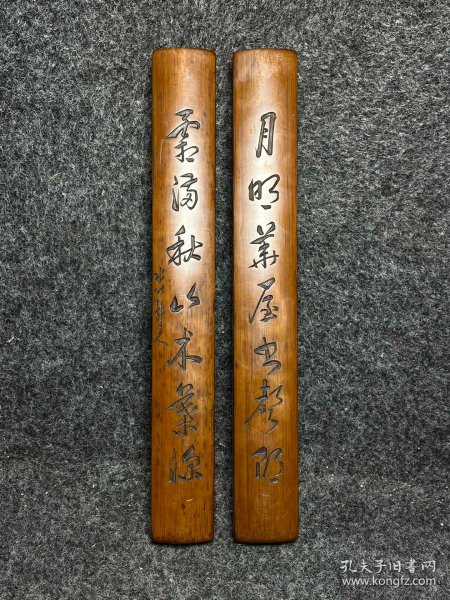 月明華屋書聲
霜滿秋山木葉深
孔夫子旧书网
www.kongfz.com